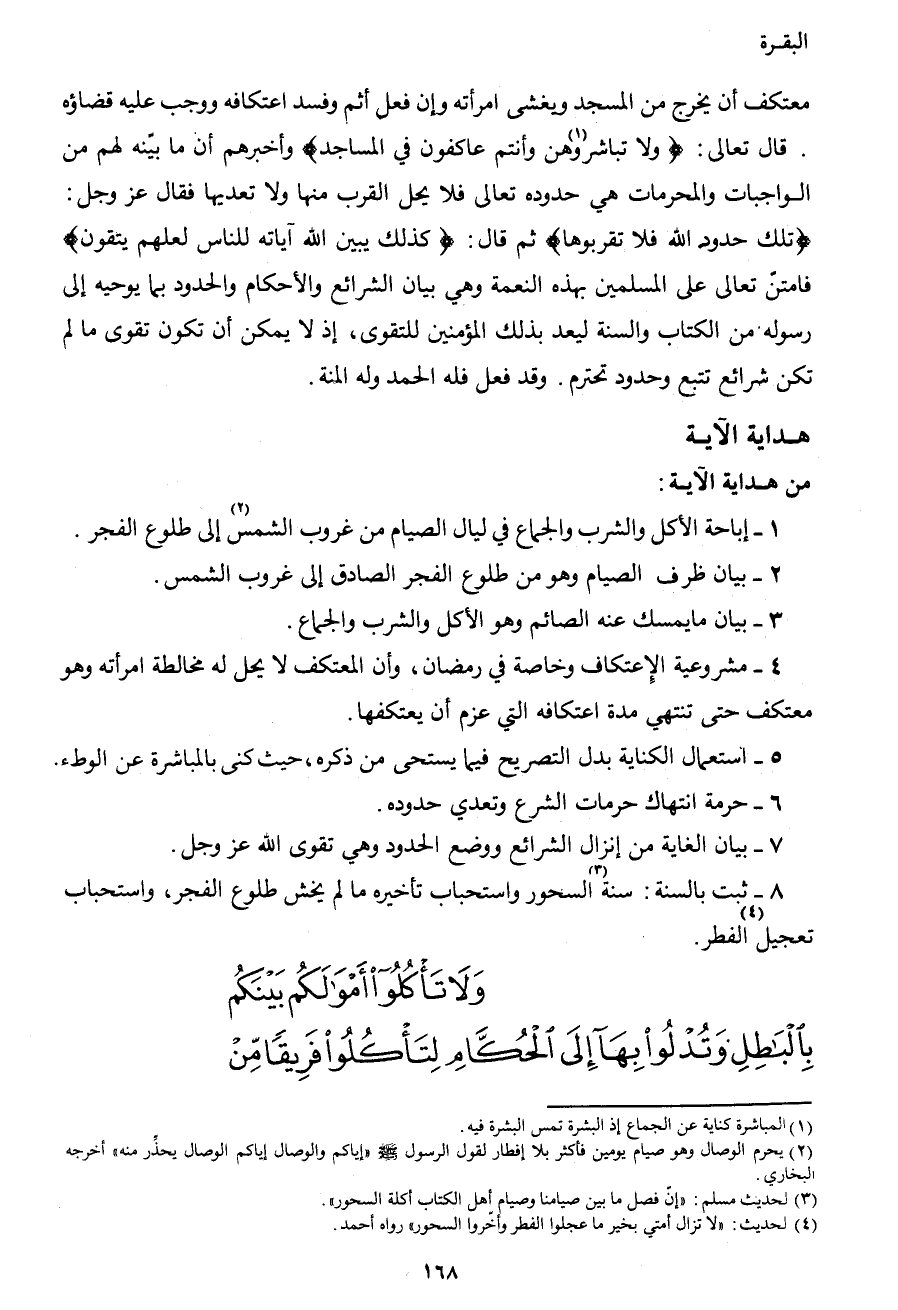 البقـرة
معتكف أن يخرج من المسجد ويغشى امرأته وإن فعل أثم وفسد اعتكافه ووجب عليه قضاؤه
. قال تعالى: ﴿ ولا تباشروهن(١) وأنتم عاكفون في المساجد﴾ وأخبرهم أن ما بيّنه لهم من
الـواجبات والمحرمات هي حدوده تعالى فلا يحل القرب منها ولا تعديها فقال عز وجل:
﴿تلك حدود الله فلا تقربوها﴾ ثم قال: ﴿ كذلك يبين الله آياته للناس لعلهم يتقون﴾
فامتنّ تعالى على المسلمين بهذه النعمة وهي بيان الشرائع والأحكام والحدود بما يوحيه إلى
رسوله من الكتاب والسنة ليعد بذلك المؤمنين للتقوى، إذ لا يمكن أن تكون تقوى ما لم
تكن شرائع تتبع وحدود تحترم. وقد فعل فله الحمد وله المنة.
هـداية الآيـة
من هـداية الآيـة:
١ ـ إباحة الأكل والشرب والجماع في ليال الصيام من غروب الشمس(٢) إلى طلوع الفجر.
٢ ـ بيان ظرف الصيام وهو من طلوع الفجر الصادق إلى غروب الشمس.
٣ ـ بيان مايمسك عنه الصائم وهو الأكل والشرب والجماع.
٤ ـ مشروعية الإعتكاف وخاصة في رمضان، وأن المعتكف لا يحل له مخالطة امرأته وهو
معتكف حتى تنتهي مدة اعتكافه التي عزم أن يعتكفها.
٥ ـ استعمال الكناية بدل التصريح فيما يستحى من ذكره، حيث كنى بالمباشرة عن الوطء.
٦ ـ حرمة انتهاك حرمات الشرع وتعدي حدوده.
٧ ـ بيان الغاية من إنزال الشرائع ووضع الحدود وهي تقوى الله عز وجل.
٨ ـ ثبت بالسنة: سنة(٣) السحور واستحباب تأخيره ما لم يخش طلوع الفجر، واستحباب
تعجيل(٤) الفطر.
وَلَا تَأۡكُلُوٓاْ أَمۡوَٰلَكُم بَيۡنَكُم
بِٱلۡبَٰطِلِ وَتُدۡلُواْ بِهَآ إِلَى ٱلۡحُكَّامِ لِتَأۡكُلُواْ فَرِيقٗا مِّنۡ
(١) المباشرة كناية عن الجماع إذ البشرة تمس البشرة فيه.
(٢) يحرم الوصال وهو صيام يومين فأكثر بلا إفطار لقول الرسول ﷺ «إياكم والوصال إياكم الوصال يحذّر منه» أخرجه
البخاري.
(٣) لحديث مسلم: «إنّ فصل ما بين صيامنا وصيام أهل الكتاب أكلة السحور».
(٤) لحديث: «لا تزال أمتي بخير ما عجلوا الفطر وأخّروا السحور» رواه أحمد.
١٦٨